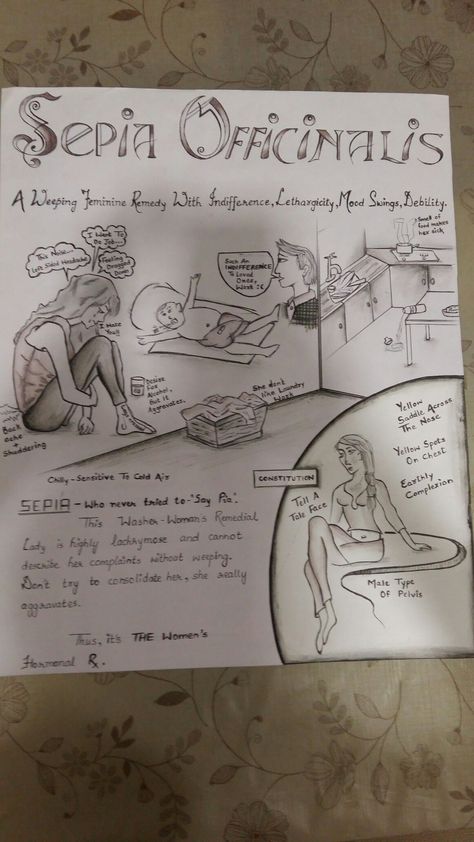 SEPIA OFFICINALIS
A Weeping Feminine Remedy With Indifference, Lethargicity, Mood Swings, Debility.
Smell of
food makes
her sick
I Want To
Do Job...
This Noise..
Left Sided Headache
Feeling
Dragged
Down
I Hate
You!!
Such An
INDIFFERENCE
To Loved
Ones,
Desire
for
Alcohol,
But it
Aggravates.
She don't
like Laundry
Work
Back
ache
+
Shuddering
Chilly - Sensitive To Cold Air
CONSTITUTION
Yellow
Saddle Across
The Nose
Yellow Spots
On Chest
Earthly
Complexion
Tell A
Tale Face
Male Type
Of Pelvis
SEPIA - Who never tried to - 'Say Pia'.
This Washer-Woman's Remedial
Lady is highly lachrymose and cannot
describe her complaints without weeping.
Don't try to consolidate her, she really
aggravates.
Thus, it's THE Women's
Hormonal Rx.